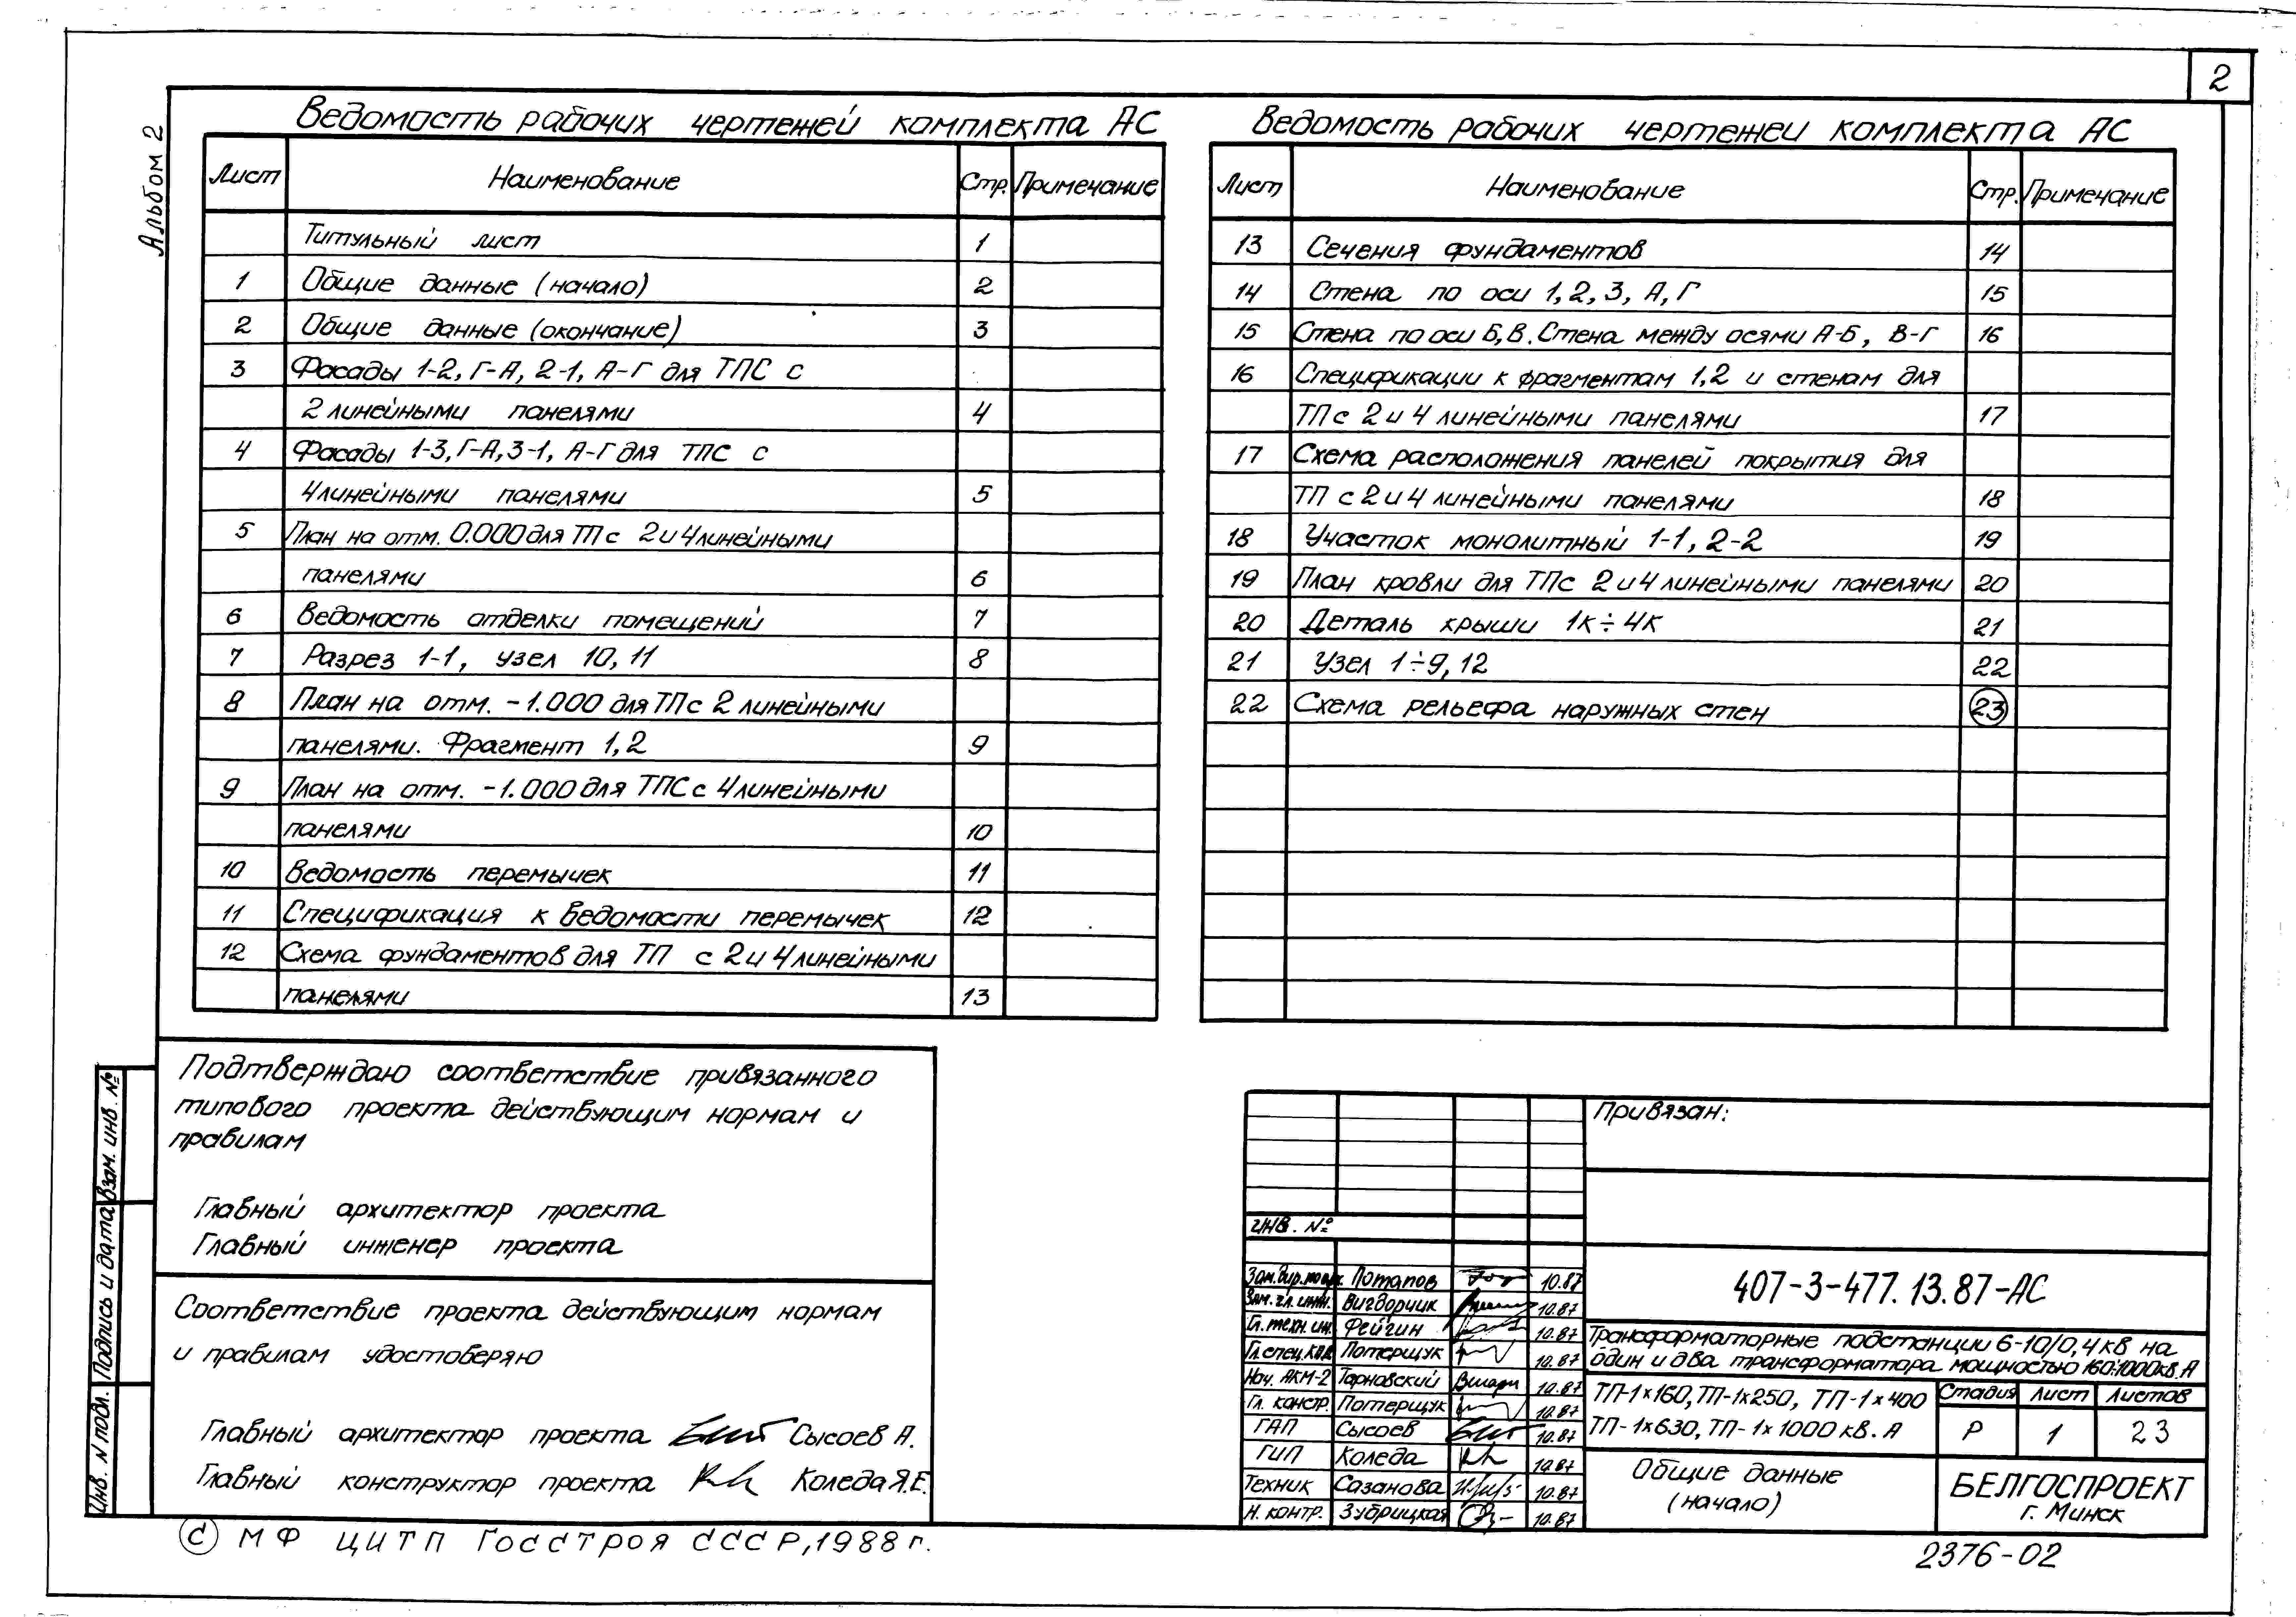 2
Альбом 2
Ведомость рабочих чертежей комплекта АС
Лист Наименование Стр. Примечание
Титульный лист 1
1 Общие данные (начало) 2
2 Общие данные (окончание) 3
3 Фасады 1-2, Г-А, 2-1, А-Г для ТПС с
2 линейными панелями 4
4 Фасады 1-3, Г-А, 3-1, А-Г для ТПС с
4 линейными панелями 5
5 План на отм. 0.000 для ТП с 2 и 4 линейными
панелями 6
6 Ведомость отделки помещений 7
7 Разрез 1-1, узел 10, 11 8
8 План на отм. -1.000 для ТП с 2 линейными
панелями. Фрагмент 1,2 9
9 План на отм. -1.000 для ТПС с 4 линейными
панелями 10
10 Ведомость перемычек 11
11 Спецификация к ведомости перемычек 12
12 Схема фундаментов для ТП с 2 и 4 линейными
панелями 13
Ведомость рабочих чертежеи комплекта АС
Лист Наименование Стр. Примечание
13 Сечения фундаментов 14
14 Стена по оси 1, 2, 3, А, Г 15
15 Стена по оси Б, В. Стена между осями А-Б, В-Г 16
16 Спецификации к фрагментам 1,2 и стенам для
ТП с 2 и 4 линейными панелями 17
17 Схема расположения панелей покрытия для
ТП с 2 и 4 линейными панелями 18
18 Участок монолитный 1-1, 2-2 19
19 План кровли для ТП с 2 и 4 линейными панелями 20
20 Деталь крыши 1к÷4к 21
21 Узел 1÷9, 12 22
22 Схема рельефа наружных стен 23
Подтверждаю соответствие привязанного
типового проекта действующим нормам и
правилам
Главный архитектор проекта
Главный инженер проекта
Соответствие проекта действующим нормам
и правилам удостоверяю
Главный архитектор проекта Сысоев А.
Главный конструктор проекта Коледа Я.Е.
Взам. инв. №
Подпись и дата
Инв. N подл.
© МФ ЦИТП Госстроя СССР, 1988 г.
Привязан:
инв. №
Потапов 10.87
Зам. гл. инж. Вигдорчик 10.87
Гл. техн. ин. Фейгин 10.87
Гл. спец. Потерщук 10.87
Нач. АКМ-2 Тарновский 10.87
Гл. констр. Потерщук 10.87
ГАП Сысоев 10.87
ГИП Коледа 10.87
Техник Сазанова 10.87
Н. контр. Зубрицкая 10.87
407-3-477.13.87-АС
Трансформаторные подстанции 6-10/0,4 кв на
один и два трансформатора мощностью 160÷1000 кв.А
ТП-1×160, ТП-1×250, ТП-1×400
ТП-1×630, ТП-1×1000 кв.А
Стадия Лист Листов
Р 1 23
Общие данные
(начало)
БЕЛГОСПРОЕКТ
г. Минск
2376-02